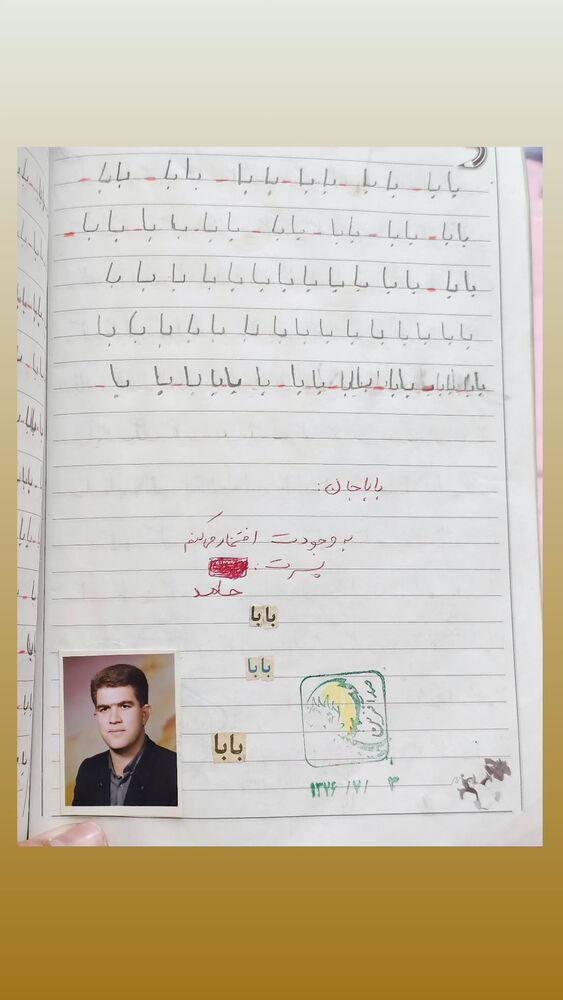 بابا - بابا - بابا - بابا - بابا - بابا
بابا - بابا - بابا - بابا - بابا بابا بابا
بابا - بابا بابا بابا بابا بابا بابا
بابا بابا بابا بابا بابا بابا بابا بابا
بابا بابا بابا بابا بابا بابا بابا بابا
باباجان:
به وجودت افتخار میکنم
پسرت:
حامد
بابا
بابا
بابا
صد آفرین
۱۳۷۶/۷/۳